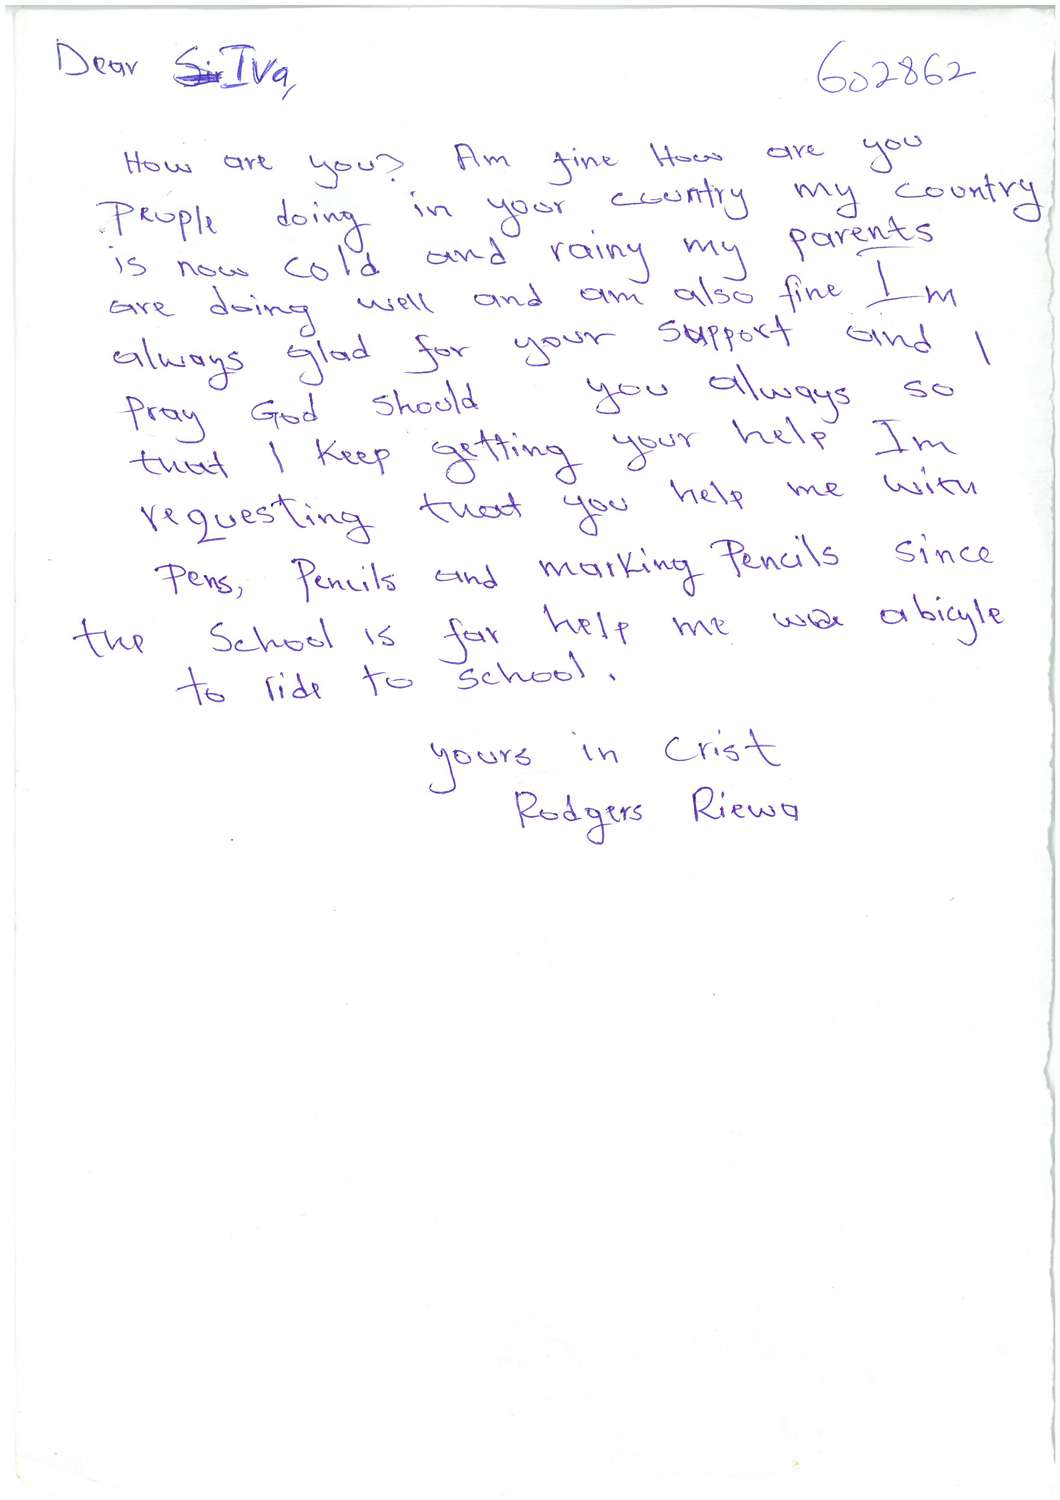 Dear Iva,
602862
How are you? Am fine How are you
People doing in your country my country
is now cold and rainy my parents
are doing well and am also fine Im
always glad for your support and I
pray God should you always so
that I keep getting your help Im
requesting that you help me with
Pens, Pencils and marking Pencils since
the School is far help me a bicyle
to ride to school.
yours in Crist
Rodgers Riewa